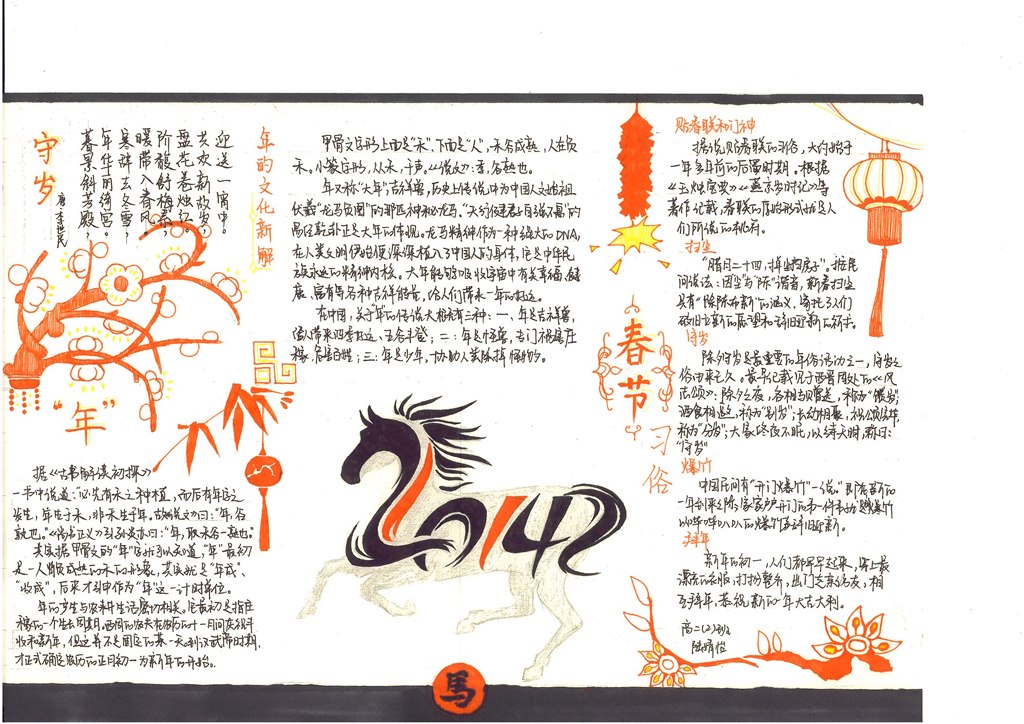 守岁
唐 李世民
暮景斜芳殿,
年华丽绮宫。
寒辞去冬雪,
暖带入春风。
阶馥舒梅素,
盘花卷烛红。
共欢新故岁,
迎送一宵中。
“年”
据《古书解读初探》
一书中说道:“必先有禾之种植,而后有年之
发生,年生于禾,非禾生于年。故《说文》曰:年,谷
熟也。”
其实据甲骨文的“年”字
是一人背负成熟的禾的形象,其实就是“年成”、
“收成”,后来才引申作为“年”这一计时单位。
年的岁生与农耕生活密切相关。它最初是指庄
稼的一个生长周期。
收和新年,但这并不固定的某一天。到汉武帝时期,
才正式确定农历的正月初一为新年的开始。
年的文化新解
甲骨文字形上面是“禾”,下面是“人”,禾谷成熟,人在负
禾。小篆字形,从禾,千声。《说文》:季,谷熟也。
年又称“大年”,吉祥兽,历史上传说中为中国人文始祖
伏羲“龙马负图”的那匹神秘龙马。“天行健君子自强不息”的
易经乾卦正是大年的体现。龙马精神作为一种强大的DNA,
在人类文明伊始便深深植入了中国人的身体,它是中华民
族永远的精神内核。大年能够吸收宇宙中有关幸福、健
康、富有等各种吉祥能量,给人们带来一年的好运。
在中国,关于“年”的传说大概有三种:一、年是吉祥兽,
给人带来四季好运、五谷丰登;二:年是怪兽,专门祸害庄
稼、危害百姓;三:年是少年,协助人类除掉怪物夕。
2014
馬
春节
习俗
贴春联和门神
据说贴春联的习俗,大约始于
一千多年前的后蜀时期。根据
《玉烛宝典》《燕京岁时记》等
著作记载,春联的原始形式就是人
们所说的桃符。
扫尘
“腊月二十四,掸尘扫房子”。据民
间说法:因“尘”与“陈”谐音,新春扫尘
具有“除陈布新”的涵义,寄托了人们
破旧立新的愿望和辞旧迎新的祈求。
守岁
除夕守岁是最重要的年俗活动之一,守岁之
俗由来已久。最早记载见于西晋周处的《风
土记》:除夕之夜,各相与赠送,称为“馈岁”;
酒食相邀,称为“别岁”;长幼相聚,祝颂完毕,
称为“分岁”;大家终夜不眠,以待天明,称曰:
“守岁”
爆竹
中国民间有“开门爆竹”一说。即在新的
一年到来之际,家家户户开门的第一件事就是燃放爆竹
以哔哔叭叭的爆竹声辞旧迎新。
拜年
新年的初一,人们都早早起来,穿上最
漂亮的衣服,打扮整齐,出门走亲访友,相
互拜年,恭祝新的一年大吉大利。
高二(2)班
陆晴怡